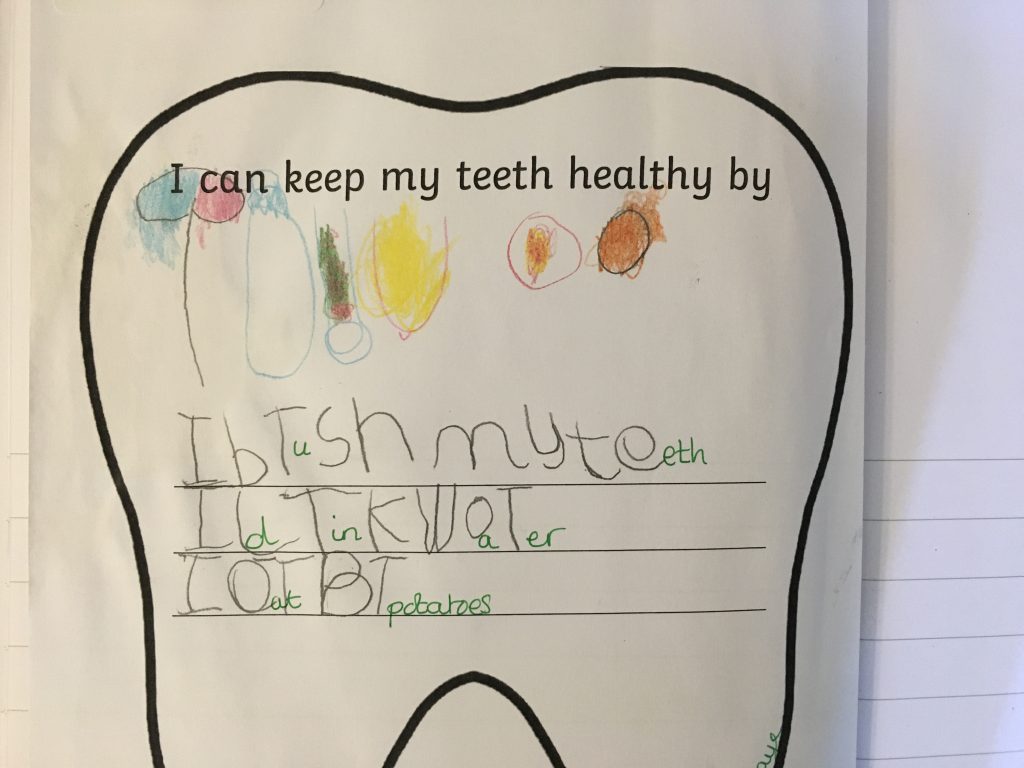 I can keep my teeth healthy by
I brush my teeth
I drink water
I eat potatoes